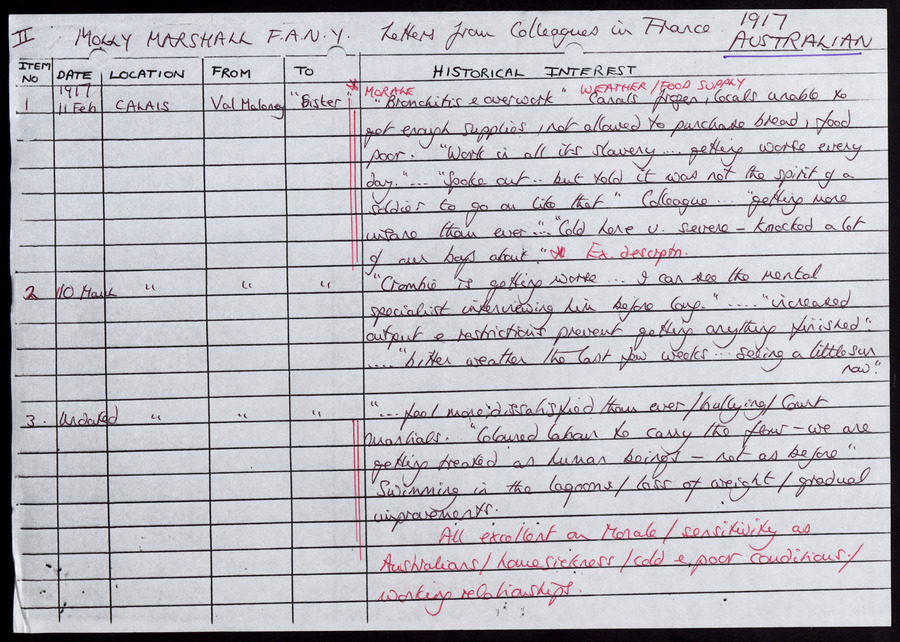 II MOLLY MARSHALL F.A.N.Y. Letters from Colleagues in France 1917
AUSTRALIAN
ITEM NO DATE LOCATION FROM TO HISTORICAL INTEREST
1917 * MORALE WEATHER/FOOD SUPPLY
1 11 Feb CALAIS Val Maloney "Sister" "Bronchitis & overwork" Canals frozen, locals unable to
get enough supplies, not allowed to purchase bread, food
poor. "Work is all its slavery... getting worse every
day."... "Spoke out.. but told it was not the spirit of a
soldier to go on like that" Colleague... "getting more
insane than ever"... "Cold here v. severe - knocked a lot
of our boys about." * Ex. descriptn.
2 10 March " " " "Crombie is getting worse... I can see the mental
specialist interviewing him before long."..... "increased
output & restrictions prevent getting anything finished".
.... "bitter weather the last few weeks... seeing a little sun
now".
3. Undated " " " "... feel more dissatisfied than ever/bullying/Court
Martials. "Coloured labour to carry the flour - we are
getting treated as human beings - not as before"
Swimming in the lagoons/loss of weight/gradual
improvements.
All excellent on Morale/sensitivity as
Australians/homesickness/cold & poor conditions/
working relationships.